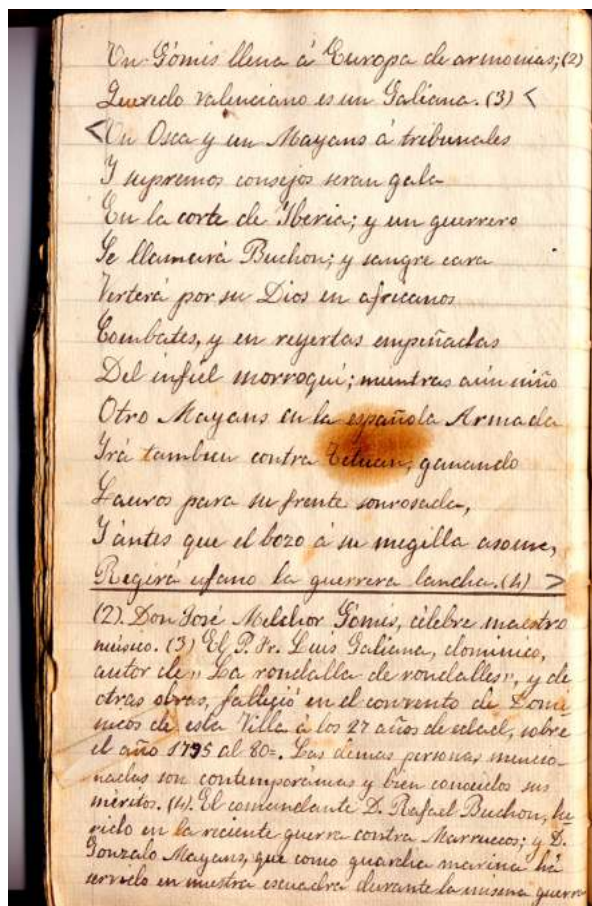 Un Gómis llena á Europa de armonias; (2)
Quevedo valenciano es un Galiana. (3) <
<Un Osca y un Mayans á tribunales
Y supremos consejos seran gala
En la corte de Iberia; y un guerrero
Se llamará Buchon; y sangre cara
Verterá por su Dios en africanos
Combates, y en reyertas empeñadas
Del infiel morroquí; mientras aún niño
Otro Mayans en la española Armada
Irá tambien contra Tetuan, ganando
Lauros para su frente sonrosada,
Y ántes que el bozo á su megilla asome,
Regirá ufano la guerrera lancha. (4) >
(2). Don José Melchor Gómis, célebre maestro
músico. (3) El P. Fr. Luis Galiana, dominico,
autor de „ La rondalla de rondalles", y de
otras obras, falleció en el convento de Domi-
nicos de esta Villa á los 27 años de edad, sobre
el año 1795 al 80=. Las demas personas mencio-
nadas son contemporáneas y bien conocidos sus
méritos. (4). El comandante D. Rafael Buchon, he-
rido en la reciente guerra contra Marruecos; y D.
Gonzalo Mayans, que como guardia marina há
servido en nuestra escuadra durante la misma guerra